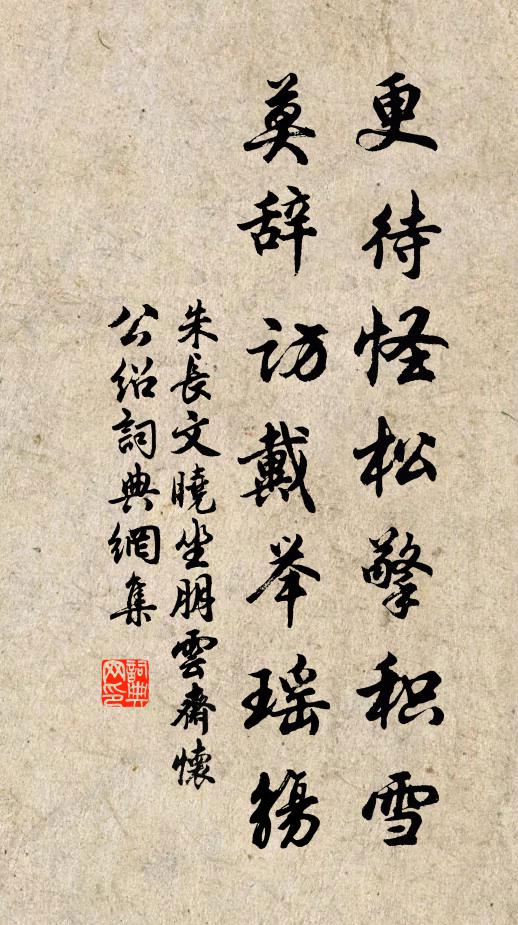 更待怪松擎积雪
莫辞访戴举瑶觞
朱長文曉坐朋雲齋懷
公绍詞典網集
詞典網印